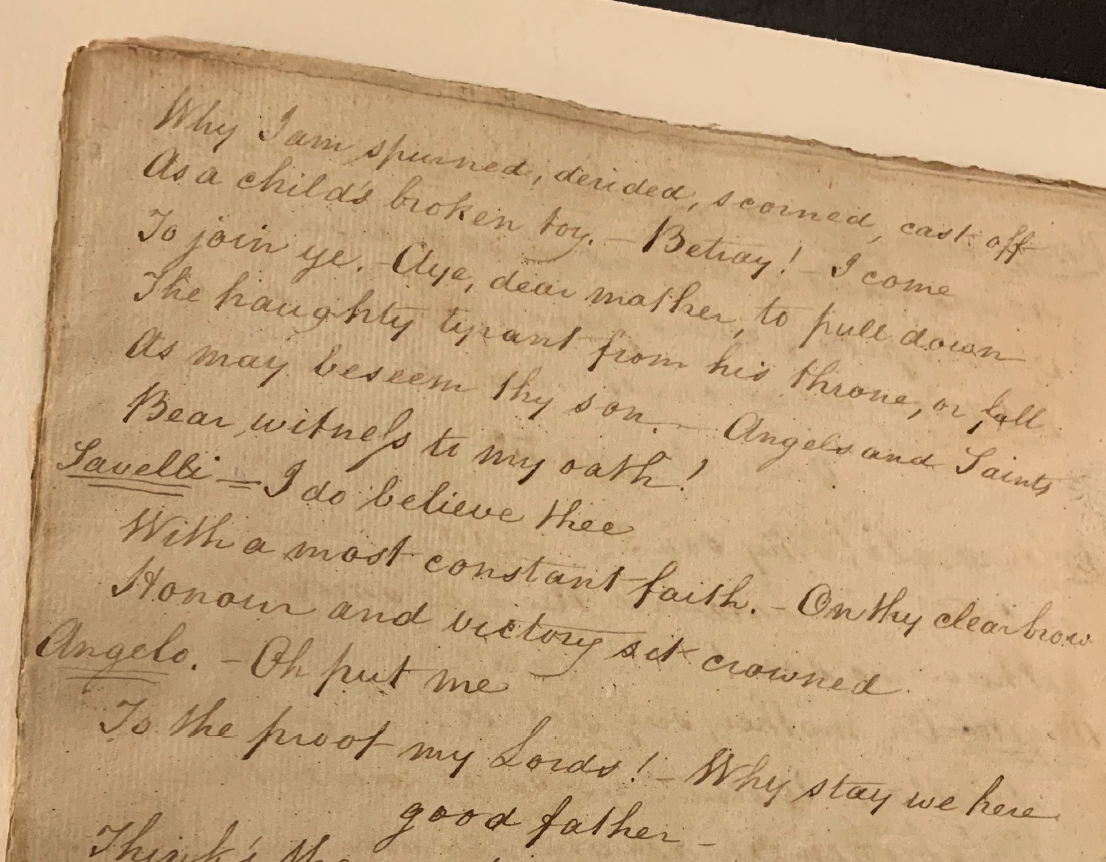 Why I am spurned, derided, scorned, cast off
As a child's broken toy. – Betray! – I come
To join ye. – Aye, dear mother, to pull down
The haughty tyrant from his throne, or fall
As may beseem thy son. – Angels and Saints
Bear witneſs to my oath!
Savelli = I do believe thee
With a most constant faith. – On thy clear brow
Honour and victory sit crowned
Angelo. – Oh put me
To the proof my Lords! – Why stay we here
good father –
Think'st